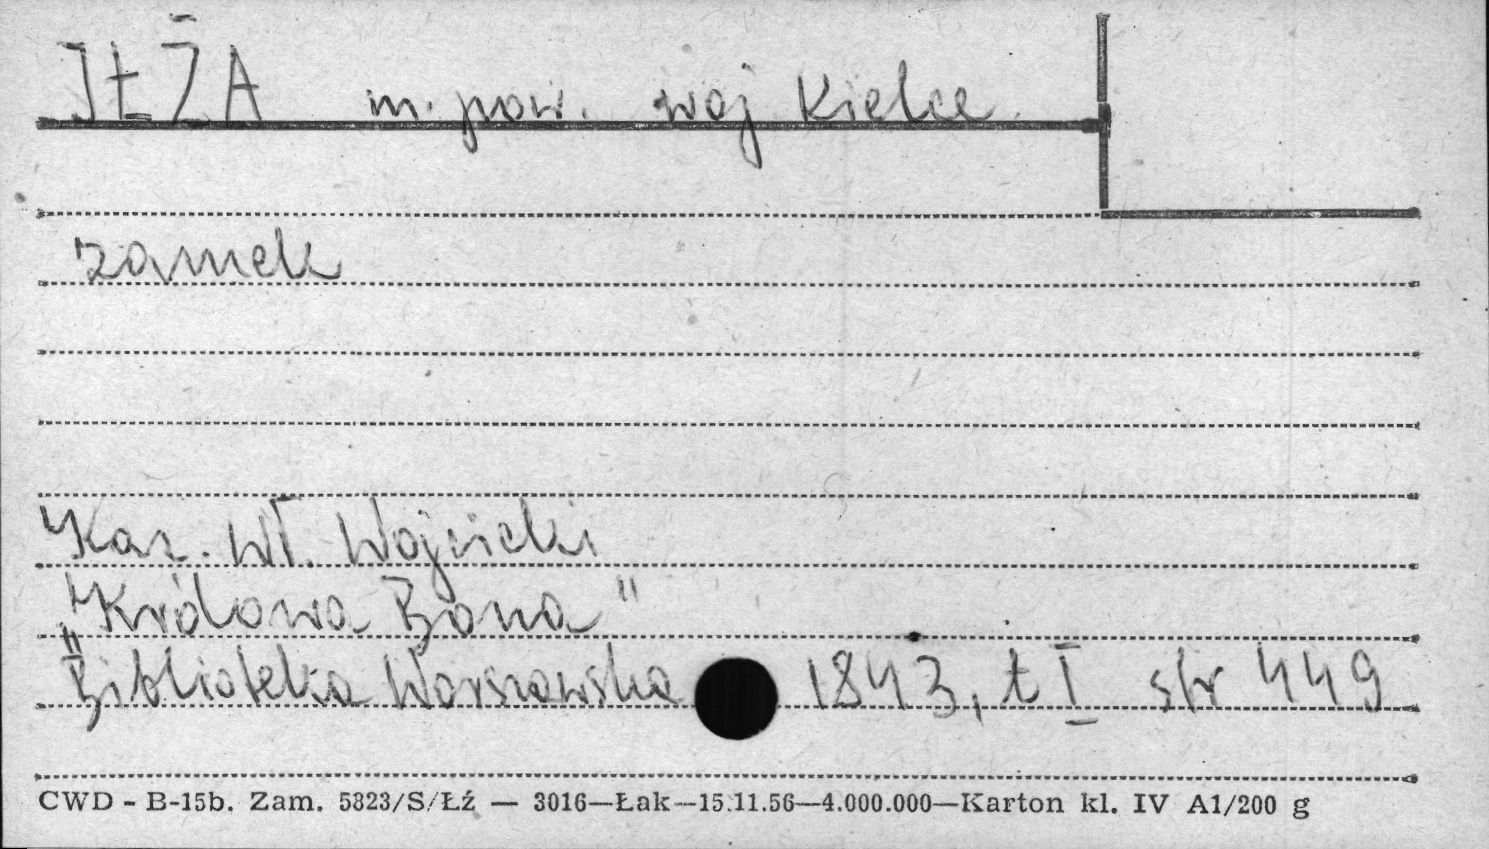 IŁŻA m. pow. woj Kielce
zamek
Kaz. Wł. Wojcicki
„Królowa Bona"
"Biblioteka Warszawska 1843, t I str 449
CWD - B-15b. Zam. 5823/S/Łź — 3016—Łak—15.11.56—4.000.000—Karton kl. IV A1/200 g